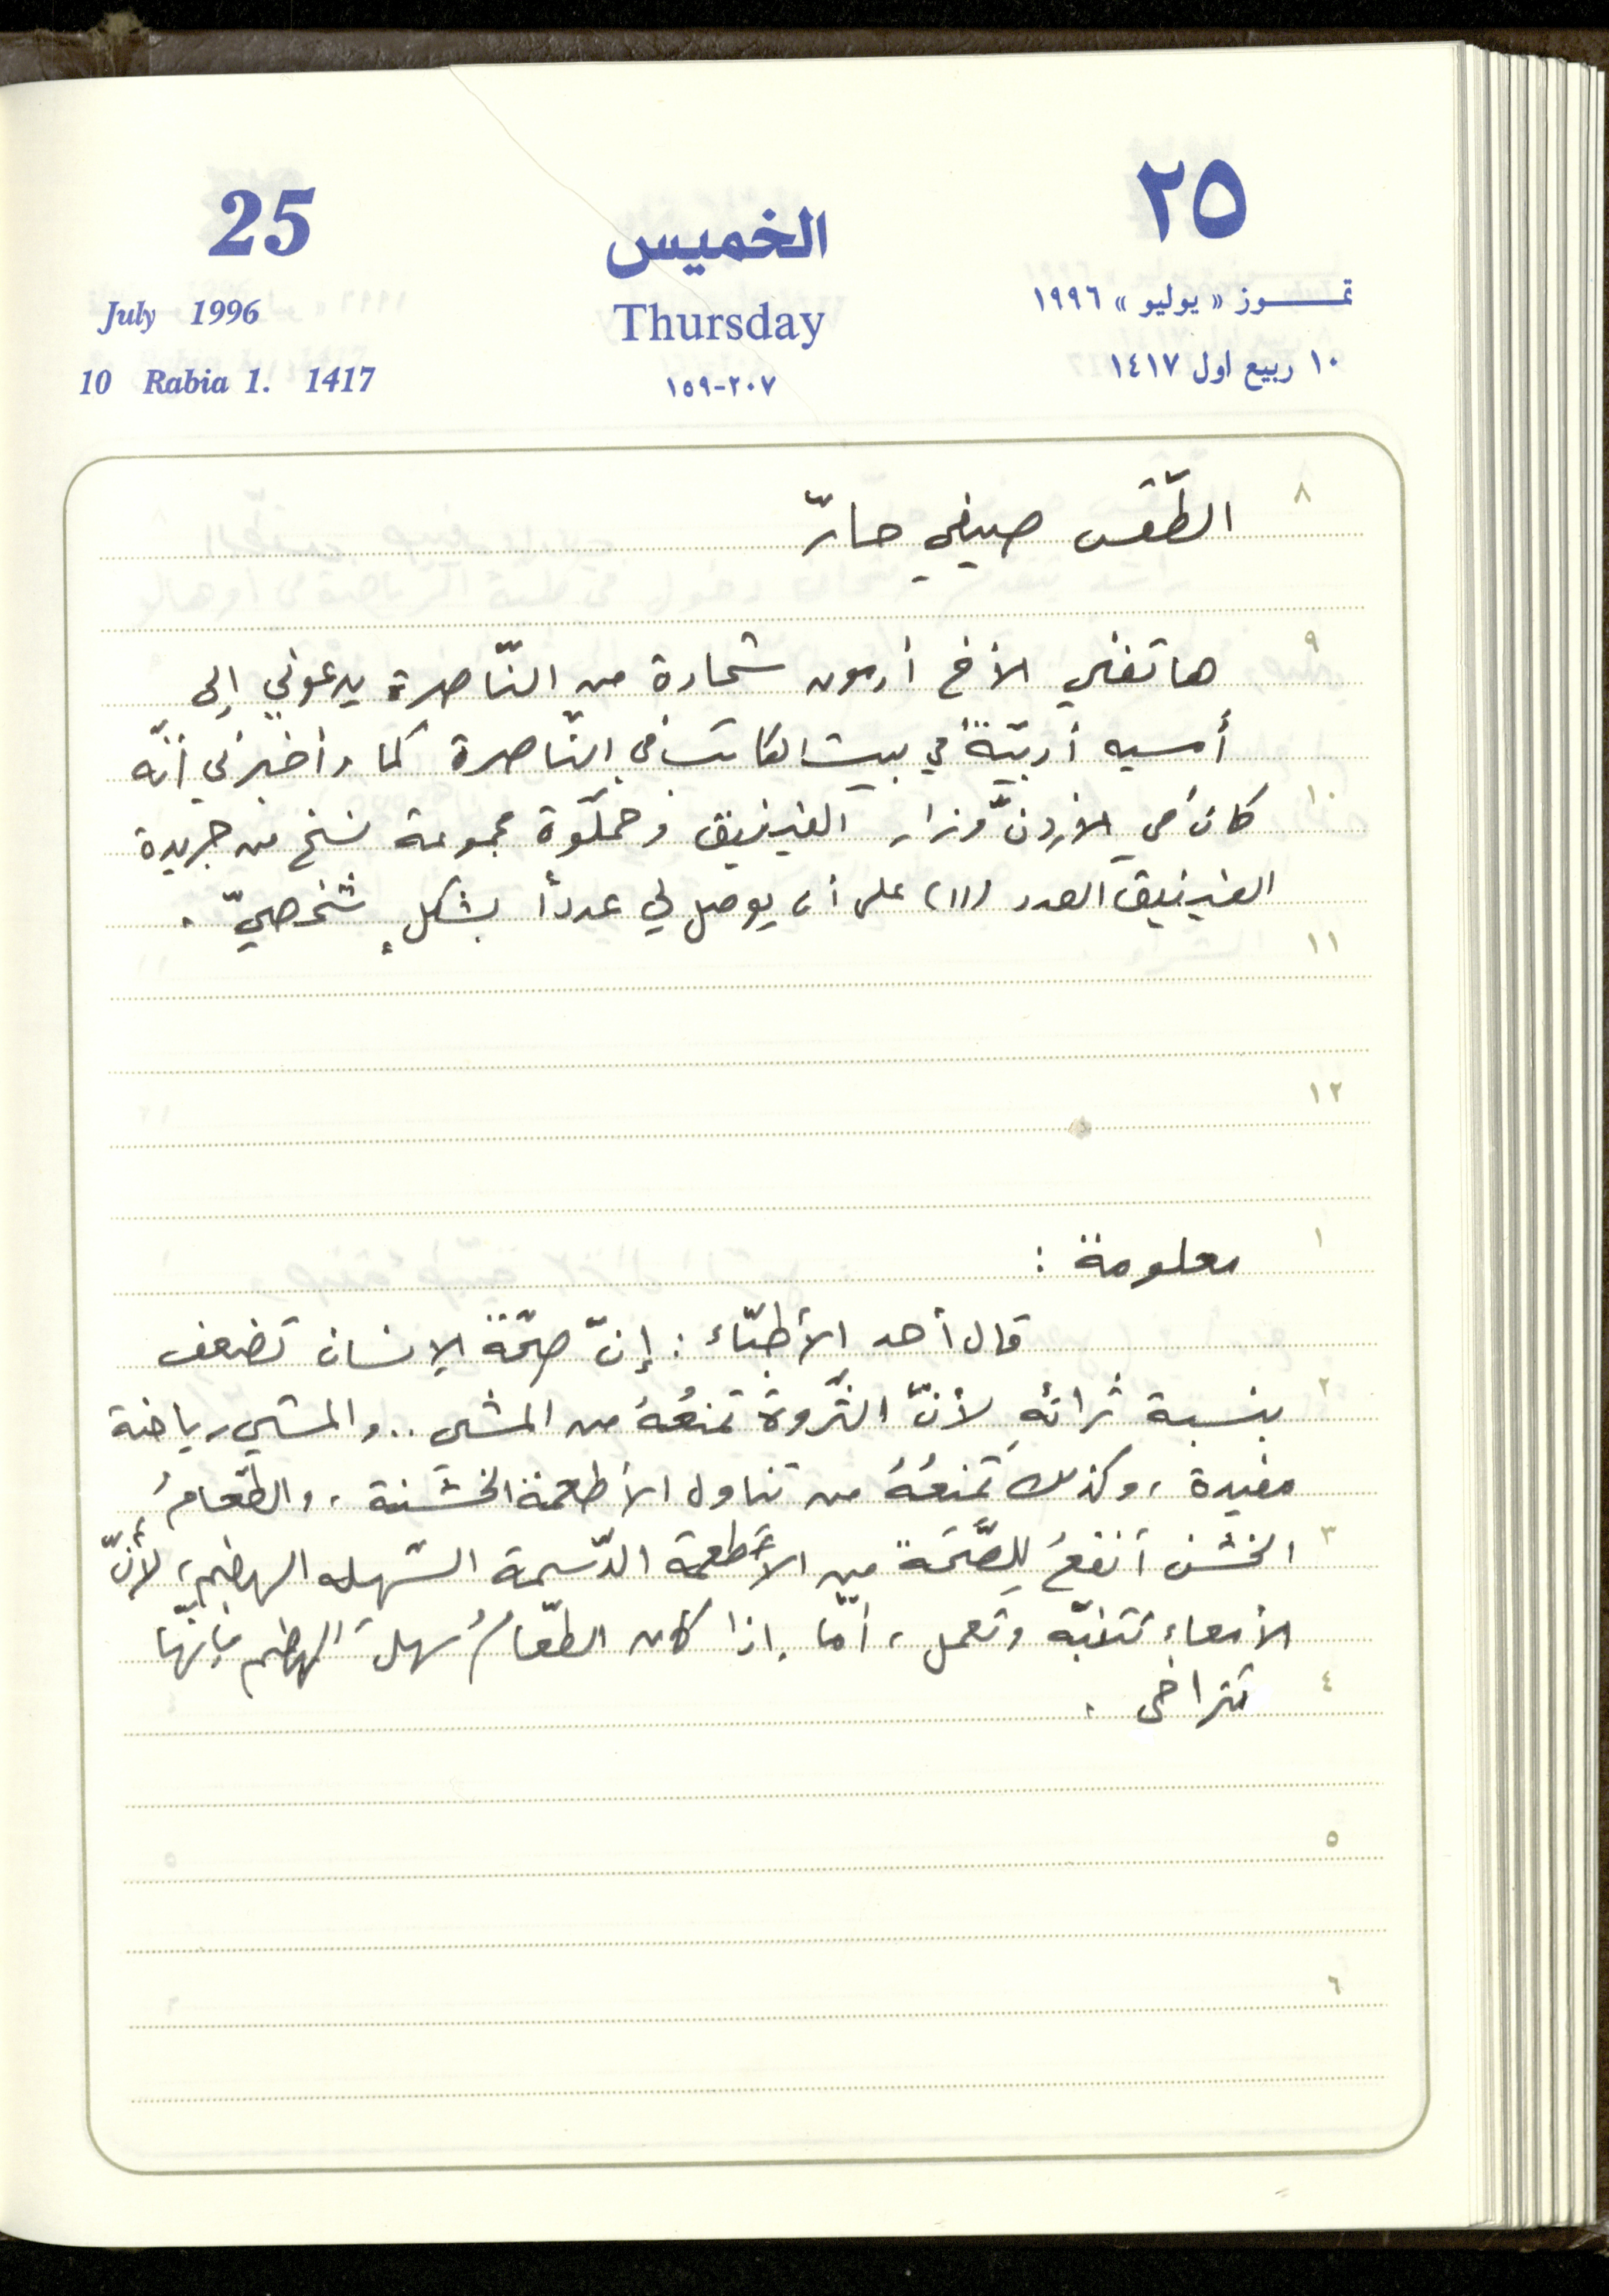 25
الخميس
٢٥
July 1996
Thursday
تمــوز « يوليو » ١٩٩٦
10 Rabia 1. 1417
١٥٩-٢٠٧
١٠ ربيع اول ١٤١٧
٨
الطّقس صيفي حارّ
٩
هاتفني الأخ أدمون شحادة من النّاصرة يدعوني إلى
أمسيه أدبيّة في بيت الكاتب في النّاصرة كما وأخبرني أنّه
١٠
كان في الأردنّ وزار الفينيق وحمّلوه مجموعة نسخ من جريدة
الفينيق العدد (١١) على أن يوصل لي عدداً بشكلٍ شخصيّ .
١١
١٢
١
معلومة :
قال أحد الأطبّاء : إنّ صحّة الإنسان تضعف
٢
بنسبة ثرائهِ لأنّ الثّروة تمنعُهُ من المشي .. والمشي رياضة
مفيدة ، وكذلك تمنعُهُ من تناول الأطعمة الخشنة ، والطّعامُ
٣
الخشن أنفعُ للصّحّة من الأطعمة الدّسمة السّهله الهضم ، لأنّ
الأمعاء تتنبّه وتعمل ، أمّا إذا كان الطّعامُ سهلَ الهضم فإنّها
٤
تتراخى .
٥
٦